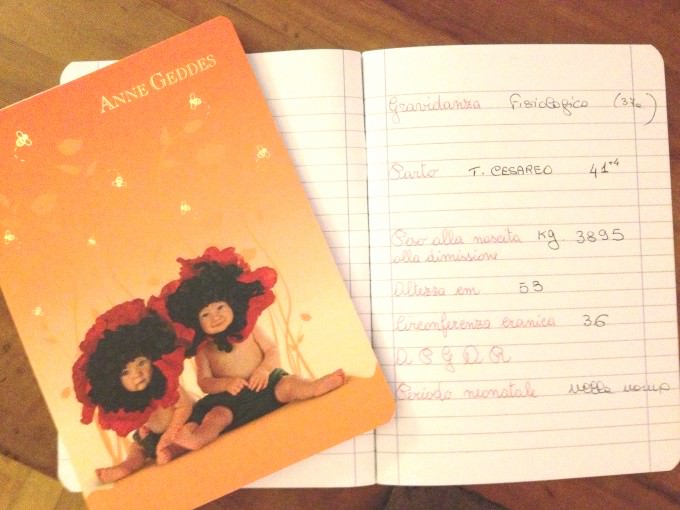 ANNE GEDDES
Gravidanza Fisiologica
Parto T. CESAREO 41+4
Peso alla nascita kg. 3895
alla dimissione
Altezza cm 53
Circonferenza cranica 36
A P G A R
Periodo neonatale nella norma